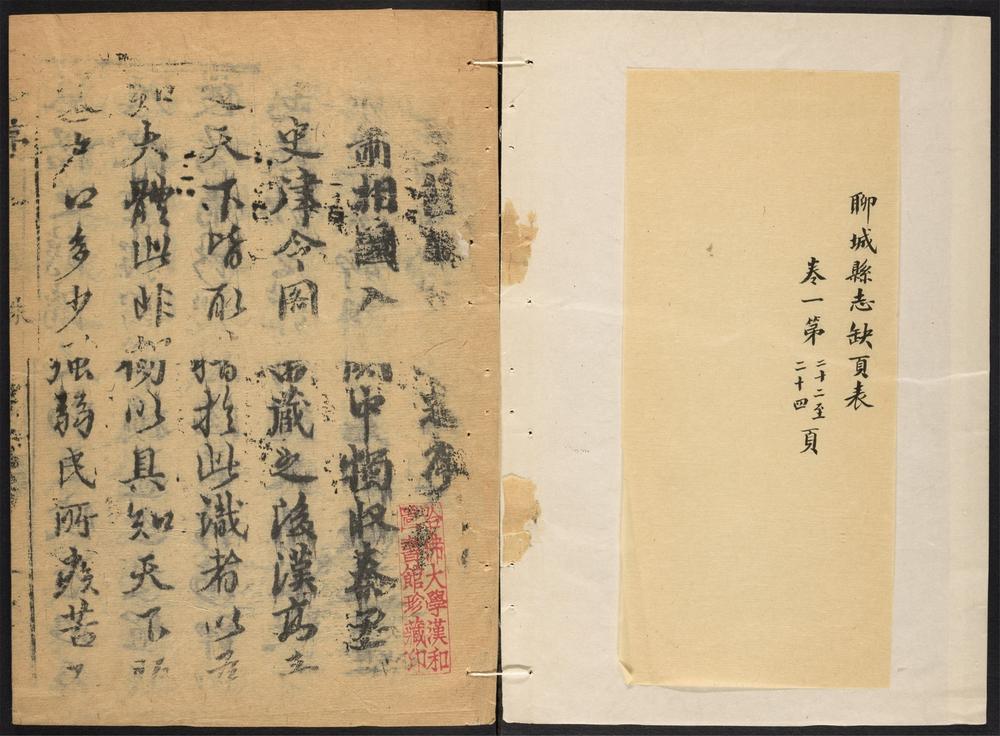 聊城縣志缺頁表
卷一第二十二至二十四頁
序
蕭相國入關中獨收秦
史律令圖書藏之後漢高
天下皆取指於此識者以為
知大體此非獨以具知天下
戶口多少強弱民所疾苦
序
哈佛大學漢和
圖書館珍藏印